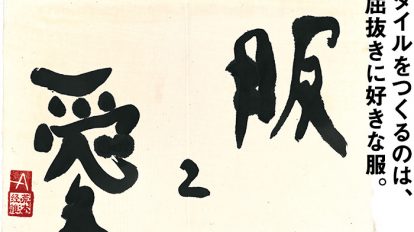 タイルをつくるのは、
屈抜きに好きな服。
服
愛
A